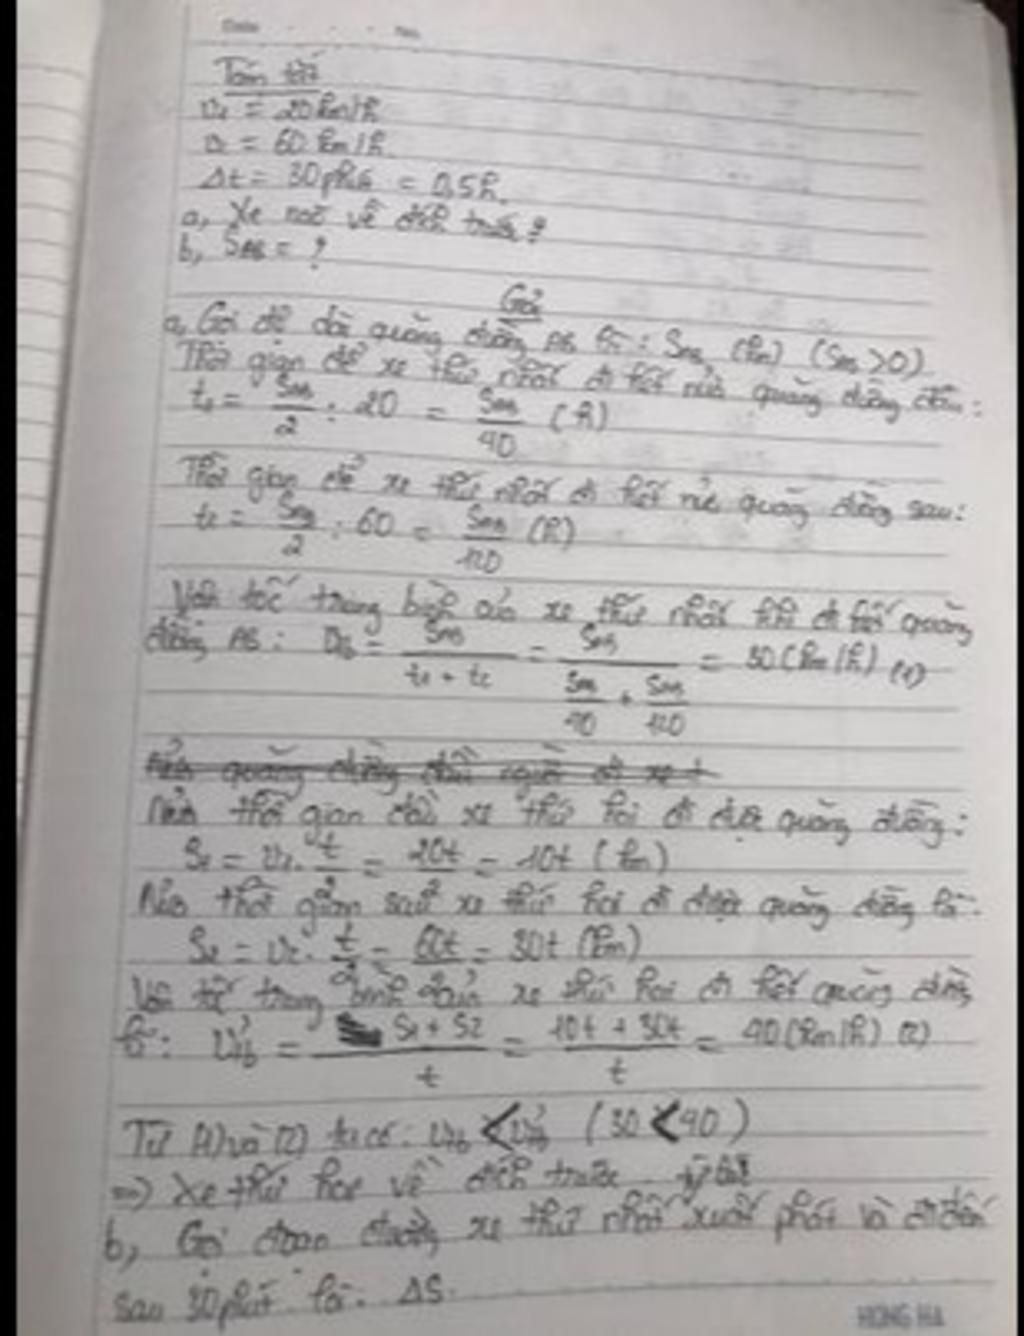 Date No.
Tóm tắt
v₁ = 20km/h
v₂ = 60 km/h
Δt = 30phút = 0,5h.
a, Xe nào về đích trước?
b, S_AB = ?
Giải
a, Gọi độ dài quãng đường AB là: S_AB (km) (S_AB > 0)
Thời gian để xe thứ nhất đi hết nửa quãng đường đầu:
t₁ = S_AB/2 : 20 = S_AB/40 (h)
Thời gian để xe thứ nhất đi hết nửa quãng đường sau:
t₂ = S_AB/2 : 60 = S_AB/120 (h)
Vận tốc trung bình của xe thứ nhất khi đi hết quãng
đường AB: v_tb = S_AB/(t₁ + t₂) = S_AB/(S_AB/40 + S_AB/120) = 30 (km/h) (1)
Nửa quãng đường đầu người đi xe t
Nửa thời gian đầu xe thứ hai đi được quãng đường:
S₁ = v₁ . t/2 = 20t/2 = 10t (km)
Nửa thời gian sau xe thứ hai đi được quãng đường là:
S₂ = v₂ . t/2 = 60t/2 = 30t (km)
Vận tốc trung bình của xe thứ hai đi hết quãng đường
là: v'_tb = (S₁ + S₂)/t = (10t + 30t)/t = 40 (km/h) (2)
Từ (1) và (2) ta có: v_tb < v'_tb (30 < 40)
=> Xe thứ hai về đích trước
b, Gọi đoạn đường xe thứ nhất xuất phát và đi đến
sau 30phút là: ΔS.
HONG HA